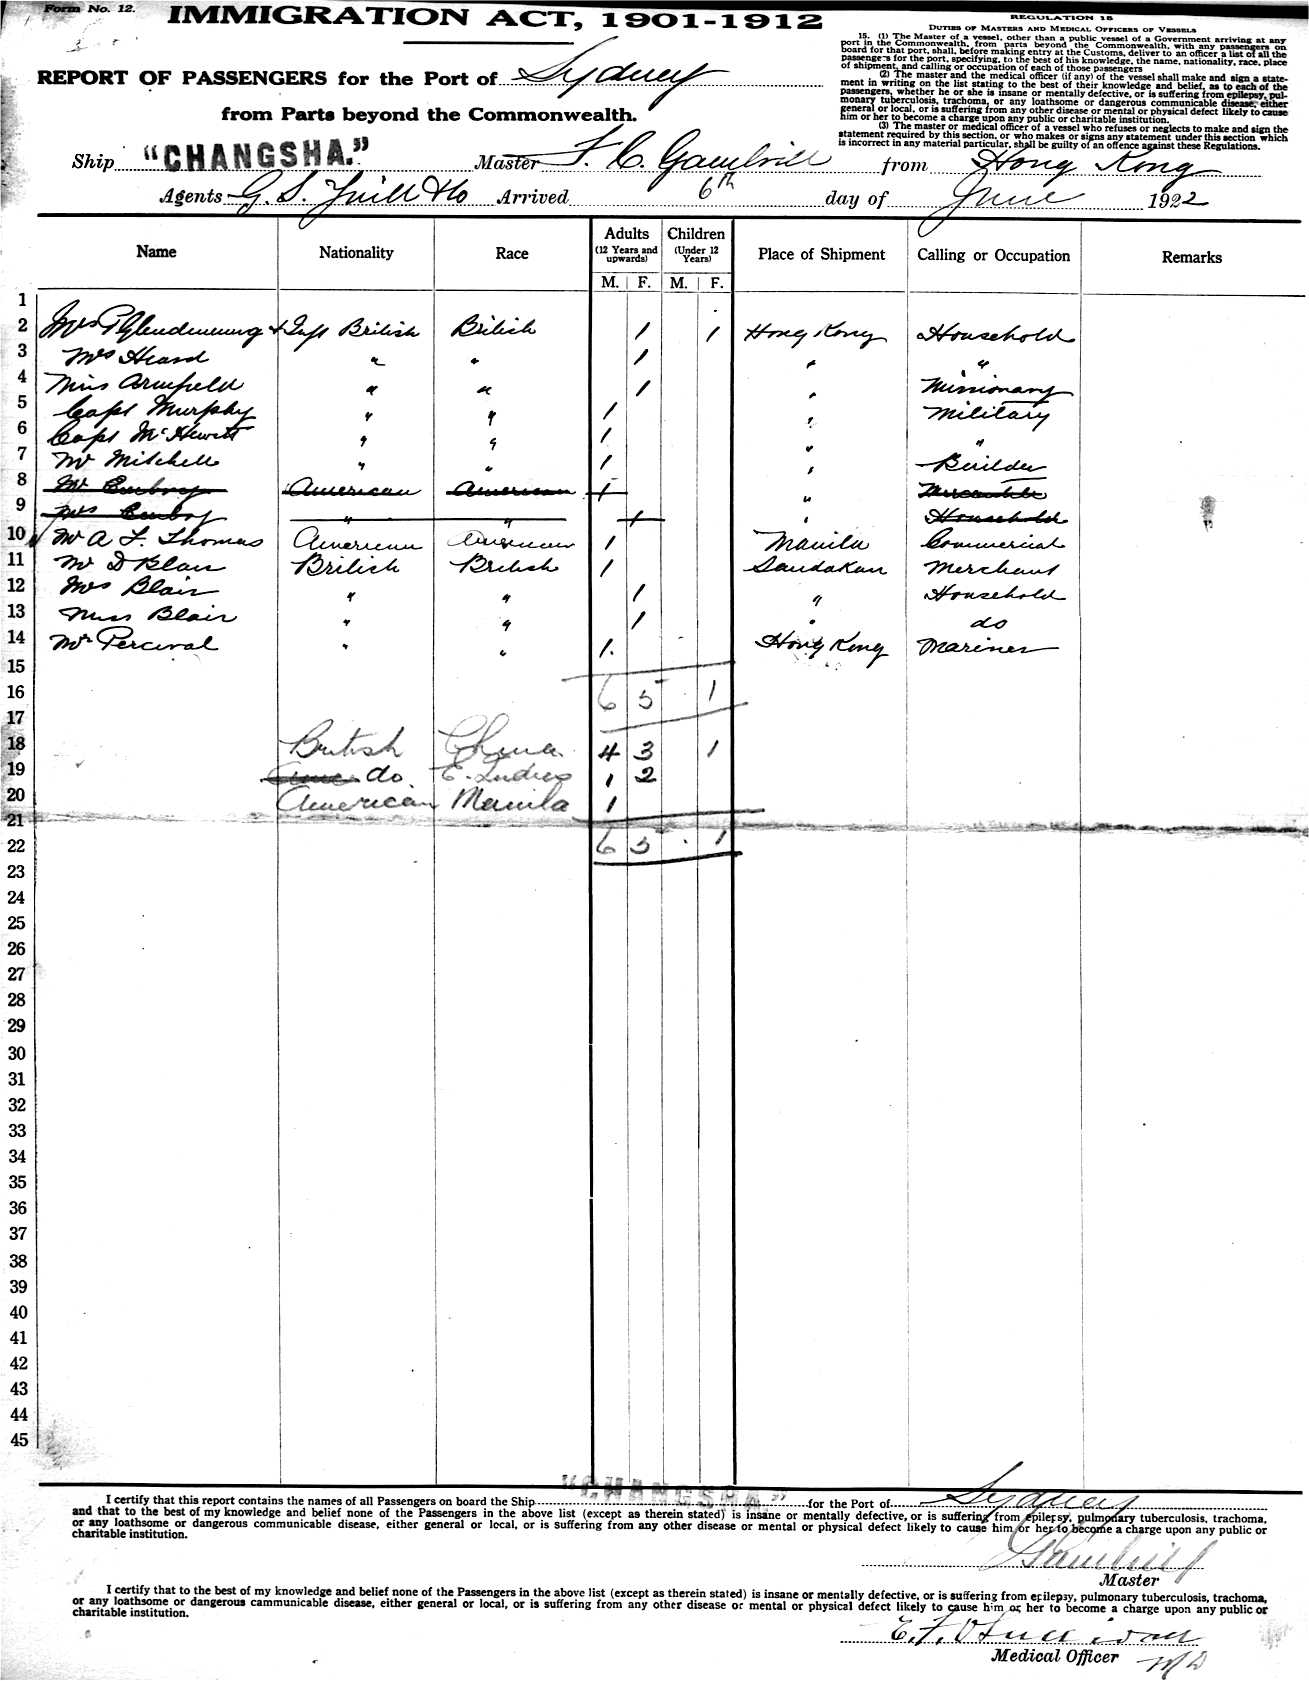 Form No. 12.
IMMIGRATION ACT, 1901-1912
REGULATION 15
DUTIES OF MASTERS AND MEDICAL OFFICERS OF VESSELS
15. (1) The Master of a vessel, other than a public vessel of a Government arriving at any
port in the Commonwealth, from parts beyond the Commonwealth, with any passengers on
board for that port, shall, before making entry at the Customs, deliver to an officer a list of all the
passengers for the port, specifying, to the best of his knowledge, the name, nationality, race, place
of shipment, and calling or occupation of each of those passengers
(2) The master and the medical officer (if any) of the vessel shall make and sign a state-
ment in writing on the list stating to the best of their knowledge and belief, as to each of the
passengers, whether he or she is insane or mentally defective, or is suffering from epilepsy, pul-
monary tuberculosis, trachoma, or any loathsome or dangerous communicable disease, either
general or local, or is suffering from any other disease or mental or physical defect likely to cause
him or her to become a charge upon any public or charitable institution.
(3) The master or medical officer of a vessel who refuses or neglects to make and sign the
statement required by this section, or who makes or signs any statement under this section which
is incorrect in any material particular, shall be guilty of an offence against these Regulations.
REPORT OF PASSENGERS for the Port of Sydney
from Parts beyond the Commonwealth.
Ship "CHANGSHA." Master F. C. Gambrill from Hong Kong
Agents G. S. Yuill & Co Arrived 6th day of June 1922
Name Nationality Race Adults (12 Years and upwards) Children (Under 12 Years) Place of Shipment Calling or Occupation Remarks
M. F. M. F.
1
2 Mrs P Glendenning & Inft British British 1 1 Hong Kong Household
3 Mrs Heard " " 1 " "
4 Miss Armfield " " 1 " Missionary
5 Capt Murphy " " 1 " Military
6 Capt McHewitt " " 1 " "
7 Mr Mitchell " " 1 " Builder
8 Mr American American 1 " Mercantile
9 Mrs " " 1 " Household
10 Mr A F. Thomas American American 1 Manila Commercial
11 Mr D Blair British British 1 Sandakan Merchant
12 Mrs Blair " " 1 " Household
13 Miss Blair " " 1 " do
14 Mr Percival " " 1. Hong Kong Mariner
15
16 6 5 1
17
18 British China 4 3 1
19 do E. Indies 1 2
20 American Manila 1
21
22 6 5 . 1
23
24
25
26
27
28
29
30
31
32
33
34
35
36
37
38
39
40
41
42
43
44
45
I certify that this report contains the names of all Passengers on board the Ship "CHANGSHA." for the Port of Sydney
and that to the best of my knowledge and belief none of the Passengers in the above list (except as therein stated) is insane or mentally defective, or is suffering from epilepsy, pulmonary tuberculosis, trachoma,
or any loathsome or dangerous communicable disease, either general or local, or is suffering from any other disease or mental or physical defect likely to cause him or her to become a charge upon any public or
charitable institution.
Gambrill
Master
I certify that to the best of my knowledge and belief none of the Passengers in the above list (except as therein stated) is insane or mentally defective, or is suffering from epilepsy, pulmonary tuberculosis, trachoma,
or any loathsome or dangerous cammunicable disease, either general or local, or is suffering from any other disease or mental or physical defect likely to cause him or her to become a charge upon any public or
charitable institution.
E. F. O'Sullivan
Medical Officer MD